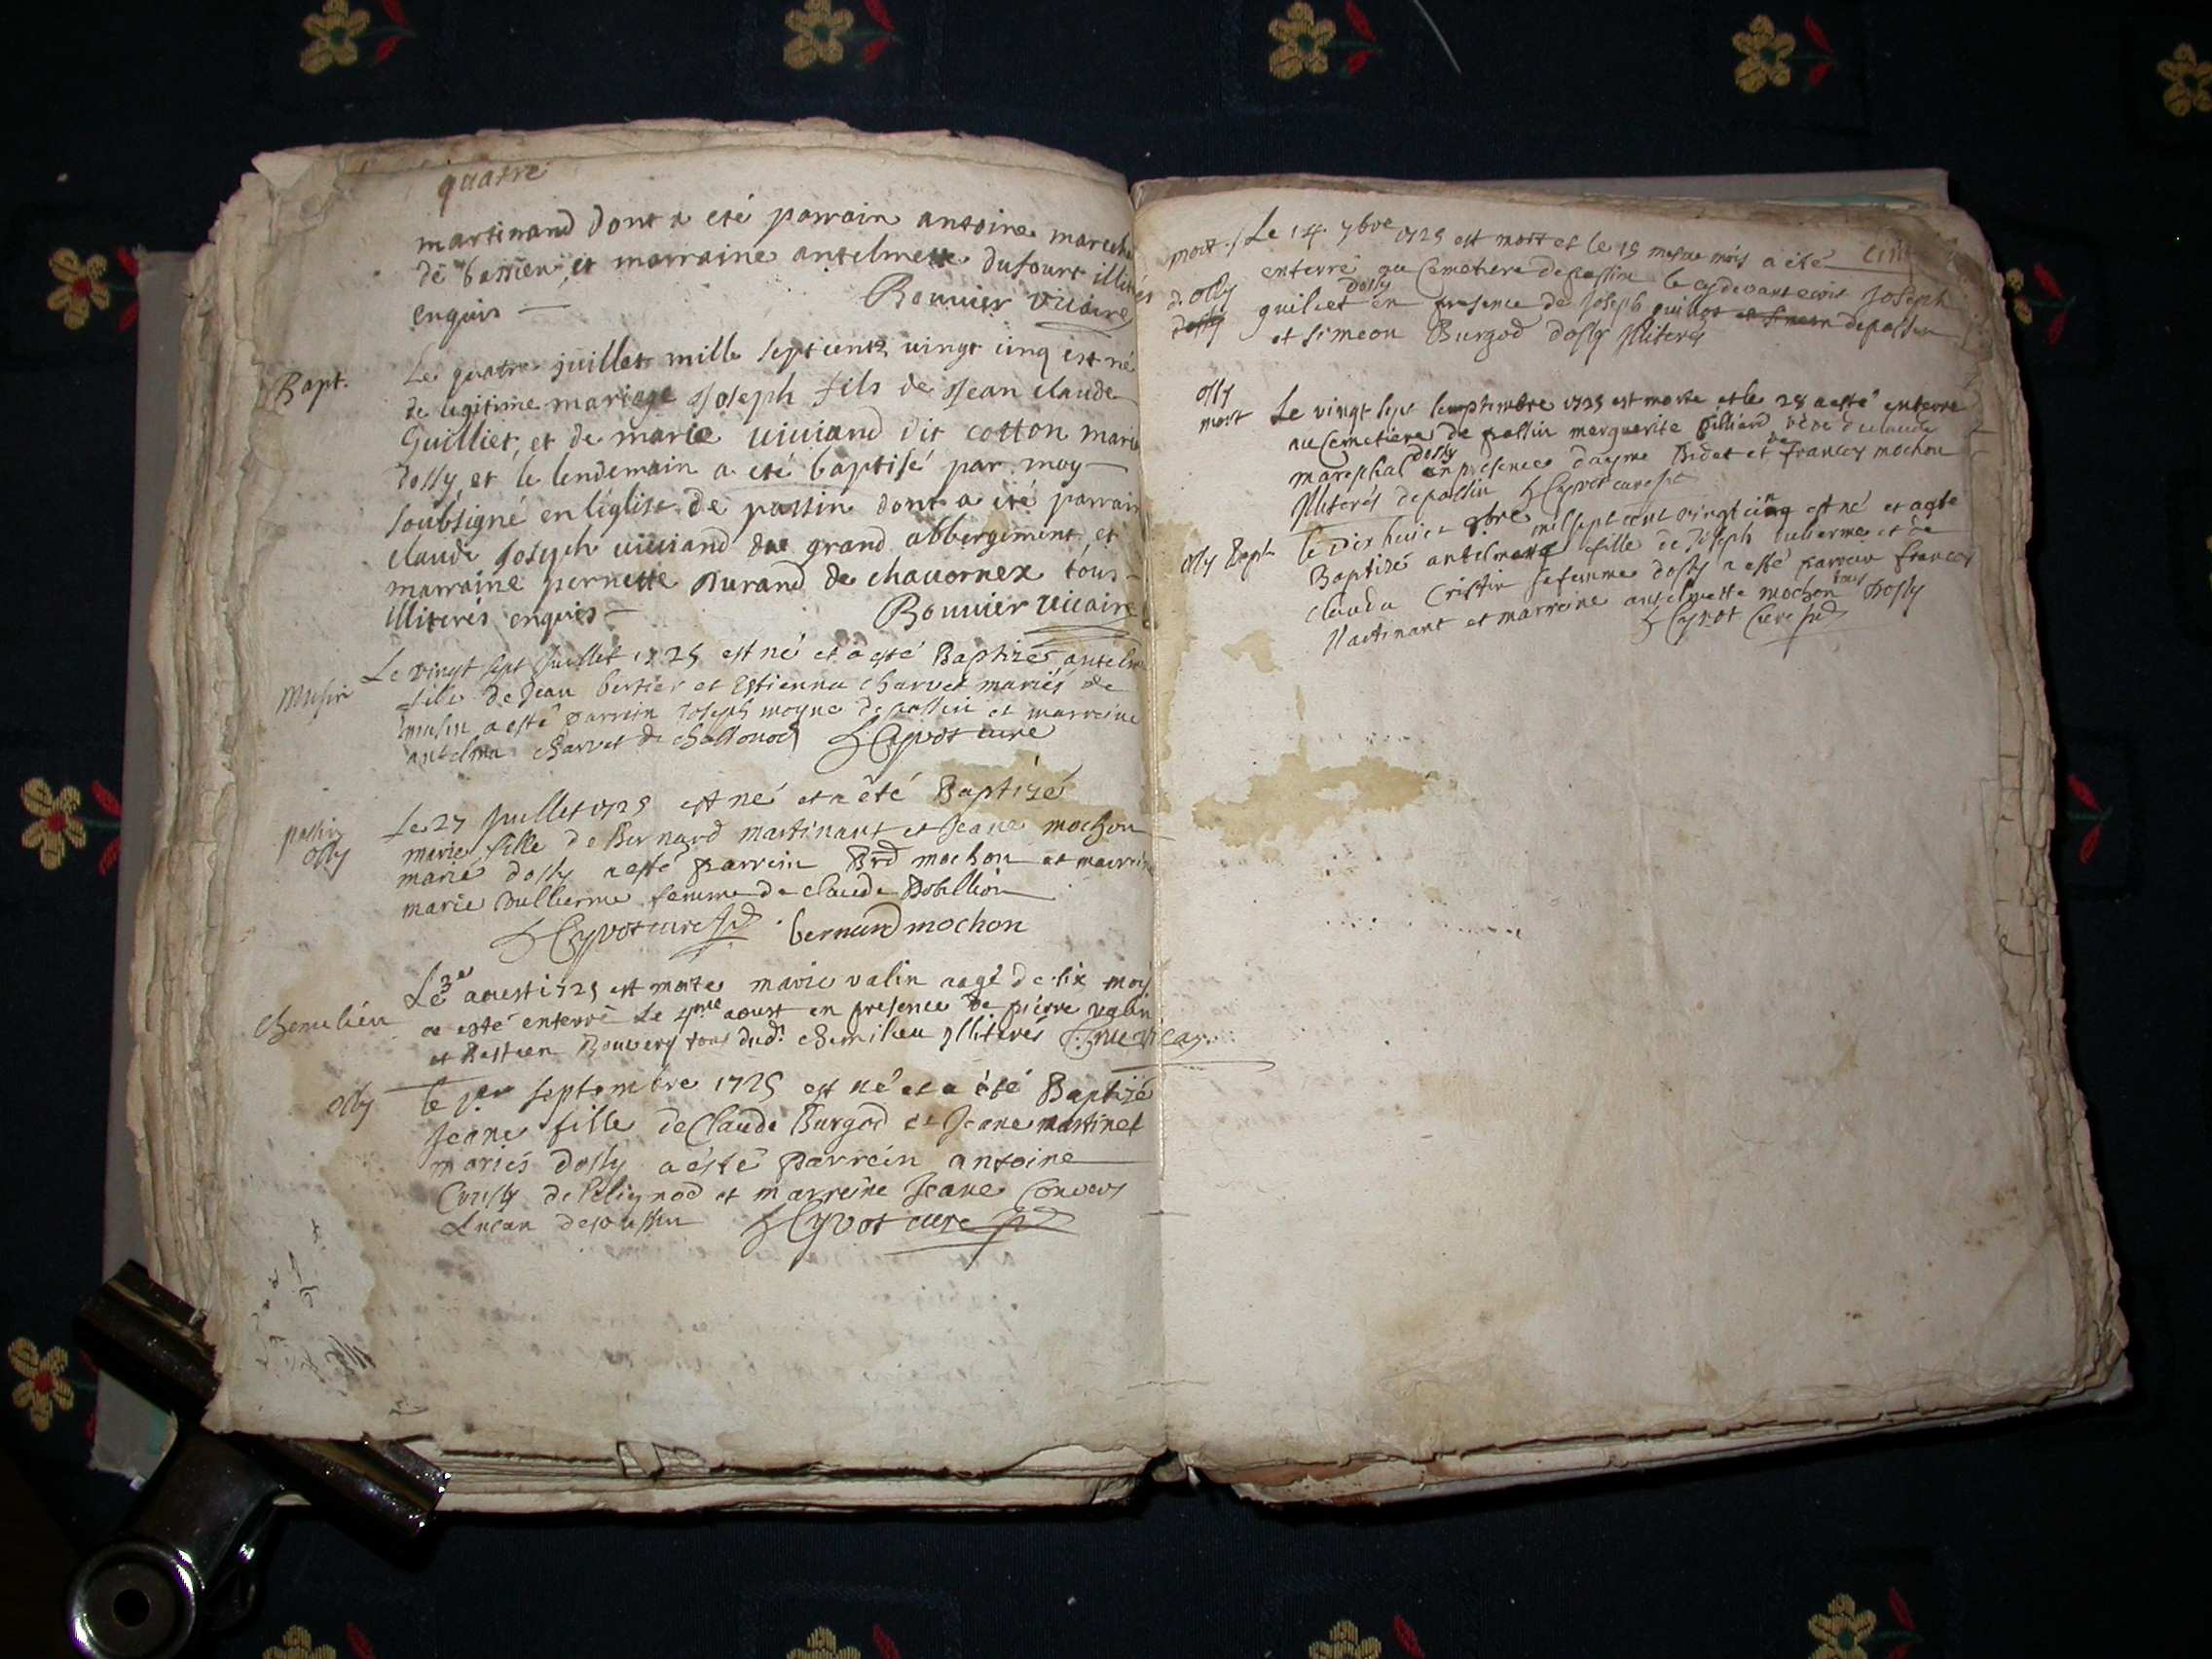 quatre
martinand dont a eté parrain antoine
de bassieu, et marraine antelmette dufour
enquis —
Bouuier vicaire
Bapt.
Le quatre juillet mille sept cents vingt cinq est né
de legitime mariage Joseph fils de Jean claude
Guilliet, et de marie viuiand dit cotton
dossy, et le lendemain a eté baptisé par moy
soubsigné en leglise de passin dont a eté parrain
claude Joseph viuiand du grand abbergement, et
marraine pernette Durand de chauornex tous
illiterés enquis —
Bouuier vicaire
musin
Le vingt sept Juillet 1725 est né et a esté Baptizé
fille de Jean bertier et Estienna charvet mariés de
musin a esté parrein Joseph moyne de passin et marreine
antelma charvet de chassonod Cyvot curé
passin
ossy
Le 27 Juillet 1725 est né et a été Baptizé
marie fille de Bernard martinant et Jeane mochon
marié dossy a esté parrein Brd mochon et
marie Vullierme femme de claude
Cyvot curé bernard mochon
chemilieu
Le 3e aoust 1725 est morte marie valin aagé de six moy
a esté enterré Le 4me aoust en presence de pierre valin
et Bastien Bouvery tous dud. chemilieu illiterés
ossy
le 1er septembre 1725 est né et a été Baptizé
Jeane fille de Claude Burgod et Jeane martinet
mariés dossy a esté parrein antoine
de et marreine Jeane
de passin Cyvot curé
mort. Le 14. 7bre 1725 est mort et le 15 mesme mois a été
d. ossy
enterré au Cemetiere de passin le cydevant Joseph
guiliet dossy en presence de Joseph guillot de passin
et simeon Burgod dossy illiterés
ossy
mort
Le vingt sept septembre 1725 est morte et le 28 a esté enterré
au Cemetiere de passin marguerite de claude
marephal dossy en presence et de francoy mochon
illiterés de passin Cyvot curé
ossy Bapt
le Dix huict 9bre mil sept cent vingt cinq est né et a esté
Baptizé antelmette fille de Joseph vulierme et de
Clauda Cristin sa femme dossy a esté parrein francoy
martinant et marreine antelmette mochon tous Dossy
Cyvot Curé